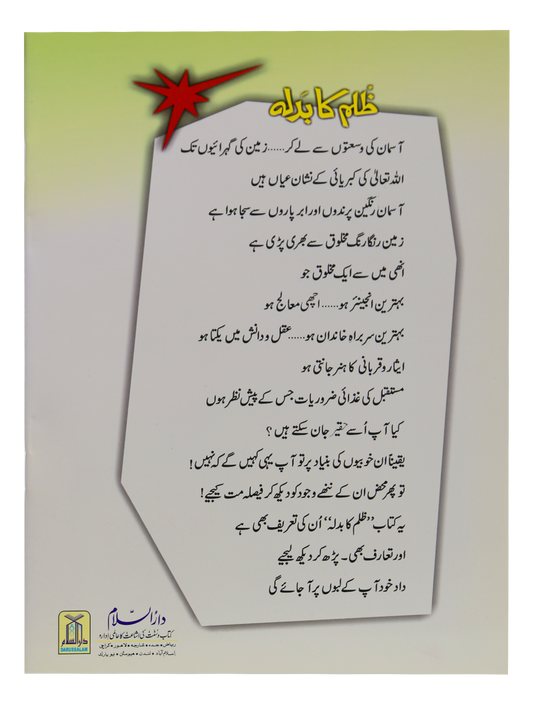 ظُلم کا بَدلہ
آسمان کی وسعتوں سے لے کر......زمین کی گہرائیوں تک
اللہ تعالیٰ کی کبریائی کے نشان عیاں ہیں
آسمان رنگین پرندوں اور ابر پاروں سے سجا ہوا ہے
زمین رنگا رنگ مخلوق سے بھری پڑی ہے
انھی میں سے ایک مخلوق جو
بہترین انجینئر ہو......اچھی معالج ہو
بہترین سربراہِ خاندان ہو......عقل و دانش میں یکتا ہو
ایثار و قربانی کا ہنر جانتی ہو
مستقبل کی غذائی ضروریات جس کے پیش نظر ہوں
کیا آپ اُسے حقیر جان سکتے ہیں؟
یقیناً ان خوبیوں کی بنیاد پر تو آپ یہی کہیں گے کہ نہیں!
تو پھر محض ان کے ننھے وجود کو دیکھ کر فیصلہ مت کیجیے!
یہ کتاب ”ظلم کا بدلہ“ اُن کی تعریف بھی ہے
اور تعارف بھی۔ پڑھ کر دیکھ لیجیے
داد خود آپ کے لبوں پر آ جائے گی
دارُالسلام
کتاب و سنت کی اشاعت کا عالمی ادارہ
ریاض • جدہ • شارجہ • لاہور • کراچی
اسلام آباد • لندن • ہیوسٹن • نیو یارک
دارالسلام
DARUSSALAM